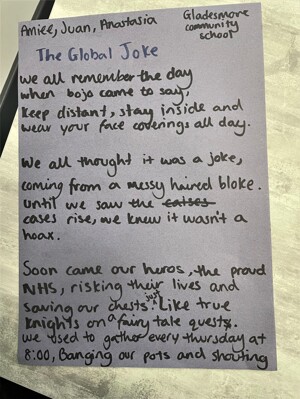 Amiee, Juan, Anastasia
Gladesmore
community
school
The Global Joke
We all remember the day
when bojo came to say,
keep distant, stay inside and
wear your face coverings all day.
We all thought it was a joke,
coming from a messy haired bloke.
Until we saw the caises
cases rise, we knew it wasn't a
hoax.
Soon came our heros, the proud
NHS, risking their lives and
saving our chests. just Like true
knights on a fairy tale quests.
We used to gather every thursday at
8:00, Banging our pots and shouting